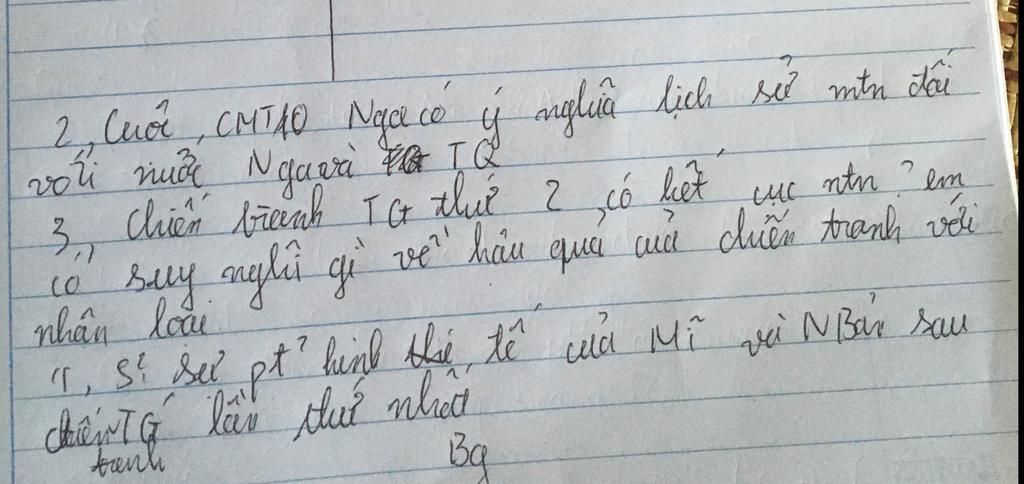 2, Cuối, CMT10 Nga có ý nghĩa lịch sử ntn đối
với nước Nga và TQ
3, Chiến tranh TG thứ 2, có kết cục ntn? em
có suy nghĩ gì về hậu quả của chiến tranh với
nhân loại
1, S² sự pt² kinh tế của Mĩ và NBản sau
chiến TG lần thứ nhất
tranh